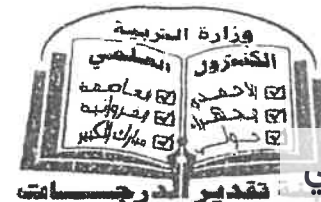 وزارة التربية
الكنترول العلمي
الأحمدي
الجهراء
حولي
العاصمة
الفروانية
مبارك الكبير
تقدير الدرجات